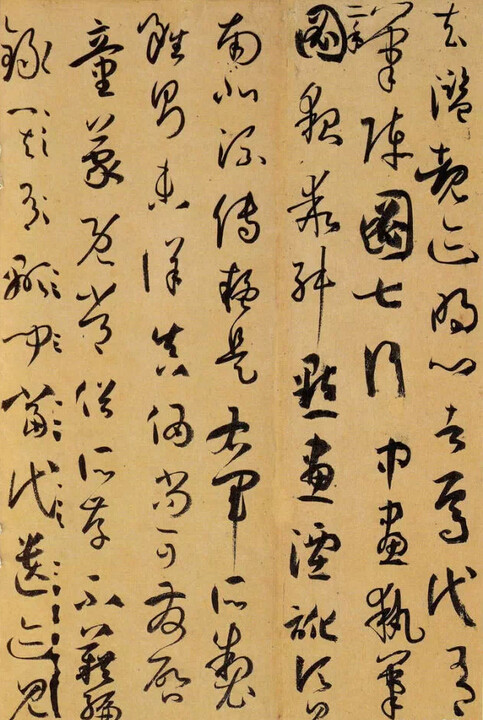 去濫觀迹明心者焉代有
筆陣圖七行中畫執筆
三手
圖貌乖舛點畫湮訛頃見
南北流傳疑是右軍所製
雖則未詳真偽尚可發啓
童蒙既常俗所存不藉編
錄當代遺迹見